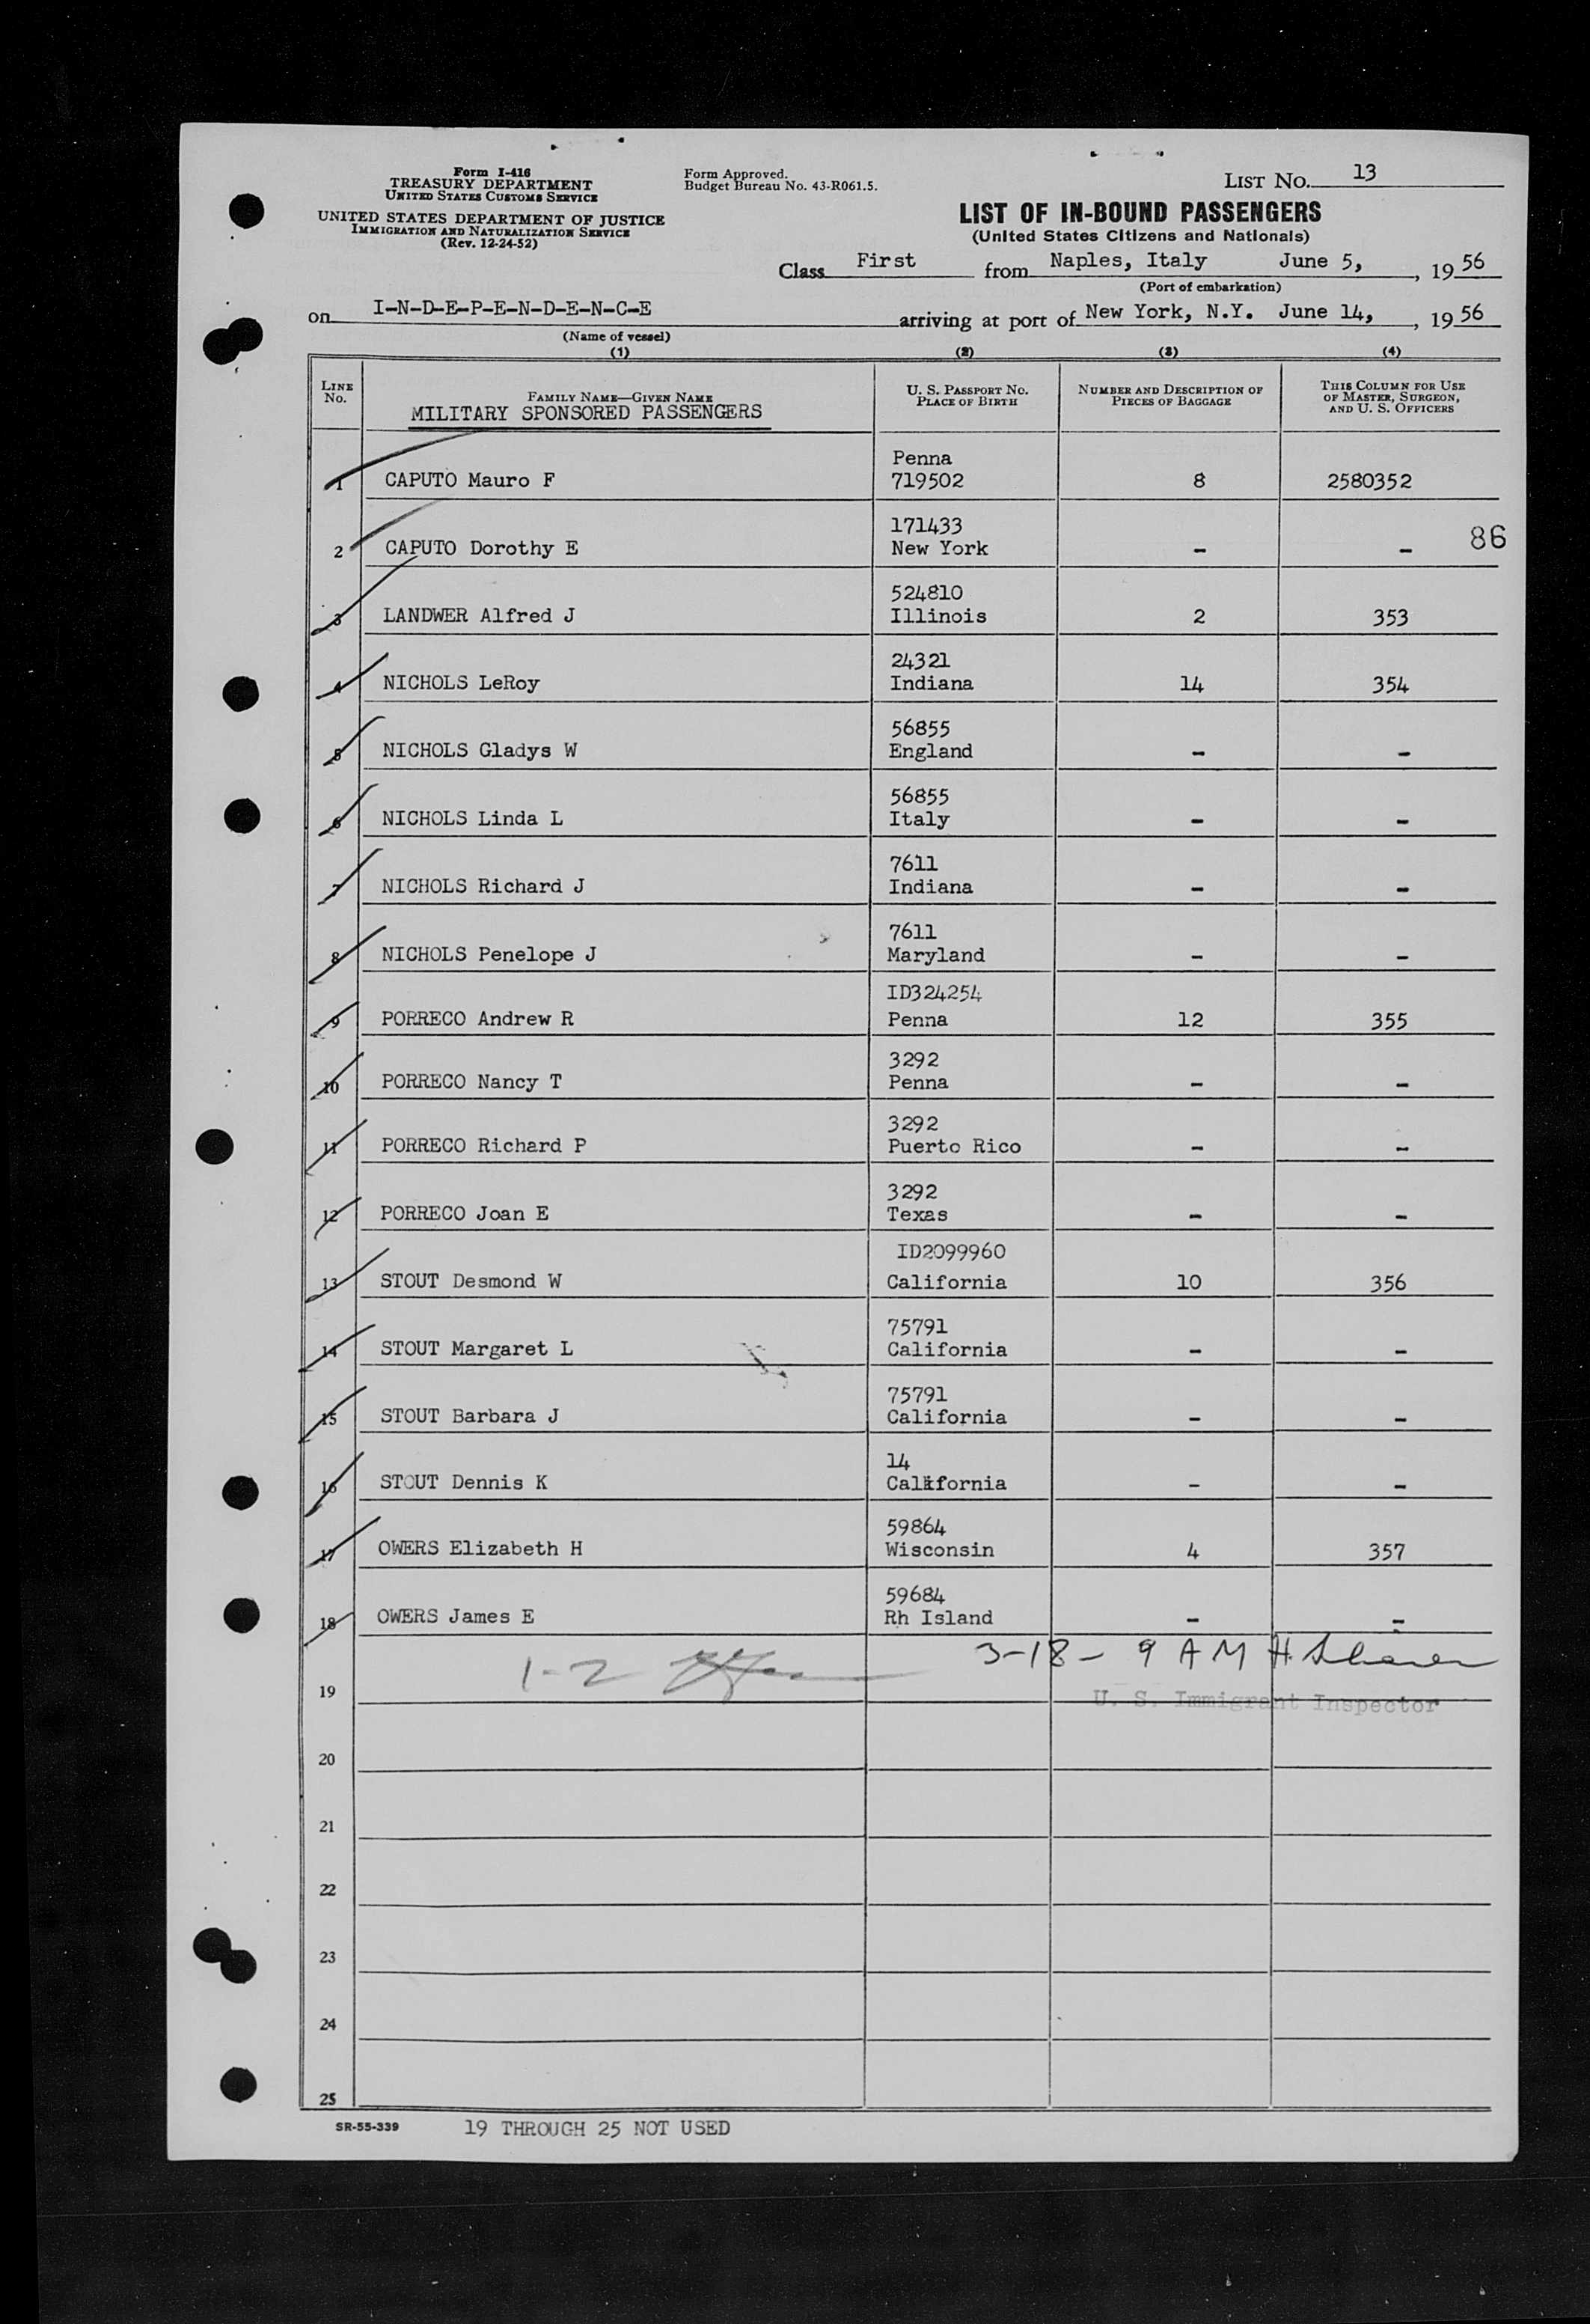 Form I-416
TREASURY DEPARTMENT
UNITED STATES CUSTOMS SERVICE
UNITED STATES DEPARTMENT OF JUSTICE
IMMIGRATION AND NATURALIZATION SERVICE
(Rev. 12-24-52)
Form Approved.
Budget Bureau No. 43-R061.5.
LIST No. 13
LIST OF IN-BOUND PASSENGERS
(United States Citizens and Nationals)
Class First from Naples, Italy June 5, , 19 56
(Port of embarkation)
on I-N-D-E-P-E-N-D-E-N-C-E arriving at port of New York, N.Y. June 14, , 19 56
(Name of vessel)
(1) (2) (3) (4)
LINE No. FAMILY NAME—GIVEN NAME U. S. PASSPORT No. PLACE OF BIRTH NUMBER AND DESCRIPTION OF PIECES OF BAGGAGE THIS COLUMN FOR USE OF MASTER, SURGEON, AND U. S. OFFICERS
MILITARY SPONSORED PASSENGERS
Penna
1 CAPUTO Mauro F 719502 8 2580352
171433
2 CAPUTO Dorothy E New York - - 86
524810
3 LANDWER Alfred J Illinois 2 353
24321
4 NICHOLS LeRoy Indiana 14 354
56855
5 NICHOLS Gladys W England - -
56855
6 NICHOLS Linda L Italy - -
7611
7 NICHOLS Richard J Indiana - -
7611
8 NICHOLS Penelope J Maryland - -
ID324254
9 PORRECO Andrew R Penna 12 355
3292
10 PORRECO Nancy T Penna - -
3292
11 PORRECO Richard P Puerto Rico - -
3292
12 PORRECO Joan E Texas - -
ID2099960
13 STOUT Desmond W California 10 356
75791
14 STOUT Margaret L California - -
75791
15 STOUT Barbara J California - -
14
16 STOUT Dennis K California - -
59864
17 OWERS Elizabeth H Wisconsin 4 357
59684
18 OWERS James E Rh Island - -
1-2 3-18- 9 AM H.
19 U. S. Immigrant Inspector
20
21
22
23
24
25
SR-55-339 19 THROUGH 25 NOT USED